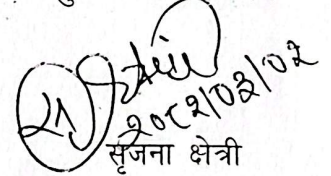 २०८२|०२|०२
सृजना क्षेत्री